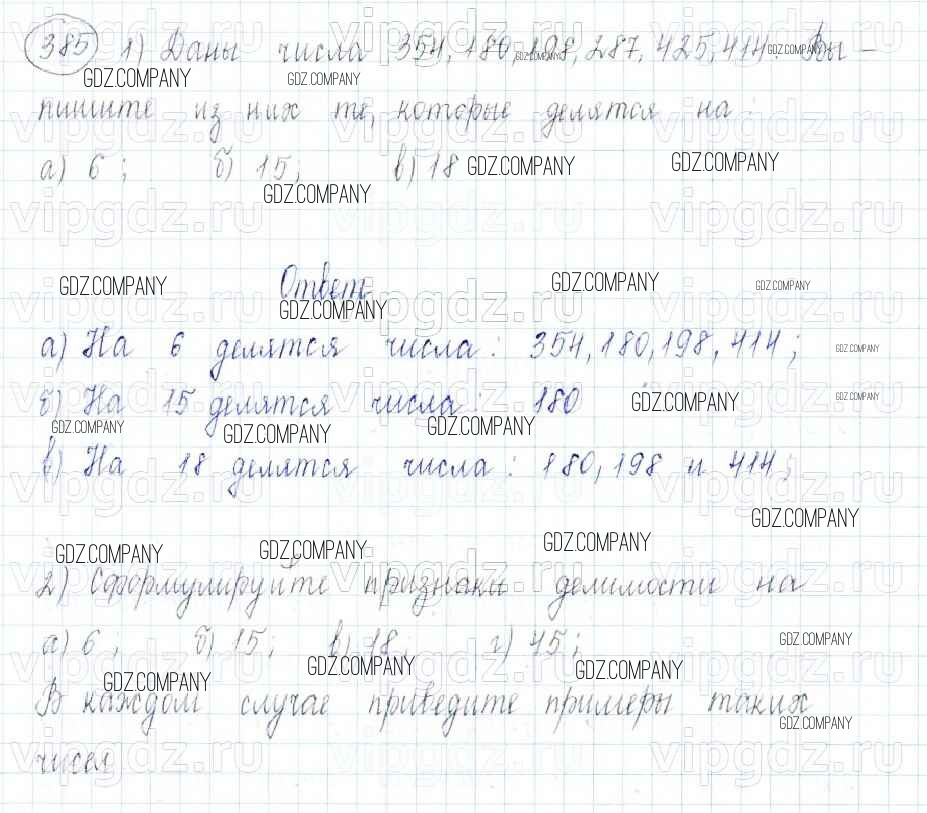 385 1) Даны числа 354, 180, 198, 287, 425, 414. Вы-
пишите из них те, которые делятся на:
а) 6; б) 15; в) 18
Ответ
а) На 6 делятся числа: 354, 180, 198, 414;
б) На 15 делятся числа: 180
в) На 18 делятся числа: 180, 198 и 414;
2) Сформулируйте признаки делимости на
а) 6; б) 15; в) 18; г) 45;
В каждом случае приведите примеры таких
чисел